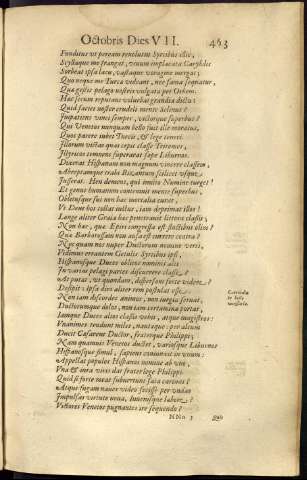 Octobris Dies VII. 463
Funditus ut peream revolutus Syrtibus illic,
Scyllaque me frangat, vivum implacata Carybdis
Sorbeat ipsa lacu, vastaque voragine mergat;
Qua neque me Turca videant, nec fama sequatur,
Qua gestis pelago nostris vulgata per Orbem.
Hac secum reputans volvebat grandia dictu:
Quid faciet noster crudeli mente Selenus?
Impatiens vinci semper, victorque superbus?
Qui Venetos nunquam bello fuit ille moratus,
Quos parere iubet Turcis, & lege teneri.
Illorum victas quas cepit classe Triremes,
Illyricos tenuens superarat sape Liburnos.
Dicerat Hispanum non magnum vincere classem,
Abreptamque trahi Bizantum scilicet usque
Iusserat. Heu demens, qui invito Numine turget!
Et genus humanum contemnit mente superbus,
Oblitusque sui non hac mortalia curat,
Ut Deus hos tollat vultus, iam deprimat illos?
Lange aliter Graia hac penetravit littora classis;
Non hac, qua Epiro congressa est fluctibus olim?
Qua Barbarossam non ausa est cernere contra?
Nec quum nos nuper Ductorum nomine versi,
Vidimus errantem Getulis Syrtibus ipsi,
Hispanosque Duces oblitos nominis alti
In varias pelagi partes discurrere classe?
At putat, ut quondam, discessum forte videre?
Desipit; ipsa dies aliter rem postulat esse.
Non iam discordes animos, non iurgia sernat,
Ductorumque dolos, non iam certamina portat;
Iamque Duces alios classis vehit, atque magistros:
Unanimes tendunt miles, nautaque: per altum
Ducit Casareum Ductor, fraterque Philippi;
Nam quamvis Venetos ductet, variosque Liburnos
Hispanosque simul, sapiens coniunxit in unum:
Appellat populos Hispano nomine ab uno,
Una & ora viris das frater lege Philippi.
Quid si forte meas subvertunt fata coronas?
Atque fugam nauta video fecisse per undas
Impulsas virtute nova, Iuvenisque labore?
Victores Venetos pugnantes ire sequendo?
NNn 3